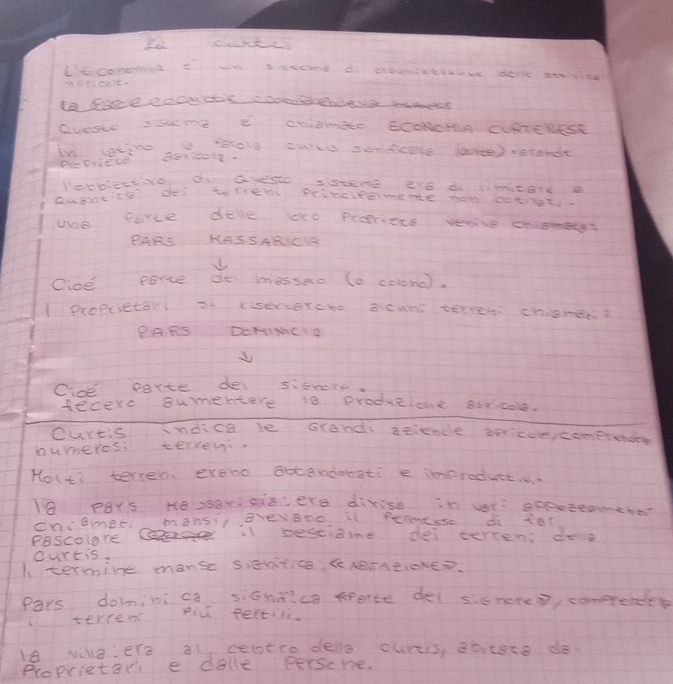 La curtis
L'Economia è un sistema di organizzazione delle attività
agricole.
la parte curtis comprendeva
Questo sistema è chiamato ECONOMIA CURTENSE
in latino la parola curtis significava grande
proprietà agricola.
l'obbiettivo di questo sistema era di limitare la
quantità dei terreni principalmente non coltivati.
una parte delle loro proprietà veniva chiamata:
PARS MASSARICIA
↓
Cioé parte del massaro (o colono).
I proprietari si riservarono alcuni terreni chiamati:
PARS DOMINICIA
↓
Cioé parte del signore.
fecero aumentare la produzione agricola.
Curtis indica le grandi aziende agricole, comprende
numerosi terreni.
Molti terreni erano abbandonati e improduttivi.
la pars massaricia: era divisa in vari appezzamenti
chiamati mansi, avevano il permesso di far
pascolare il bestiame dei terreni della
curtis.
Il termine manso significa: « ABITAZIONE».
Pars dominica significa «parte del signore», comprende
i terreni più fertili.
la villa: era al centro della curtis, abitata dai
proprietari e dalle persone.